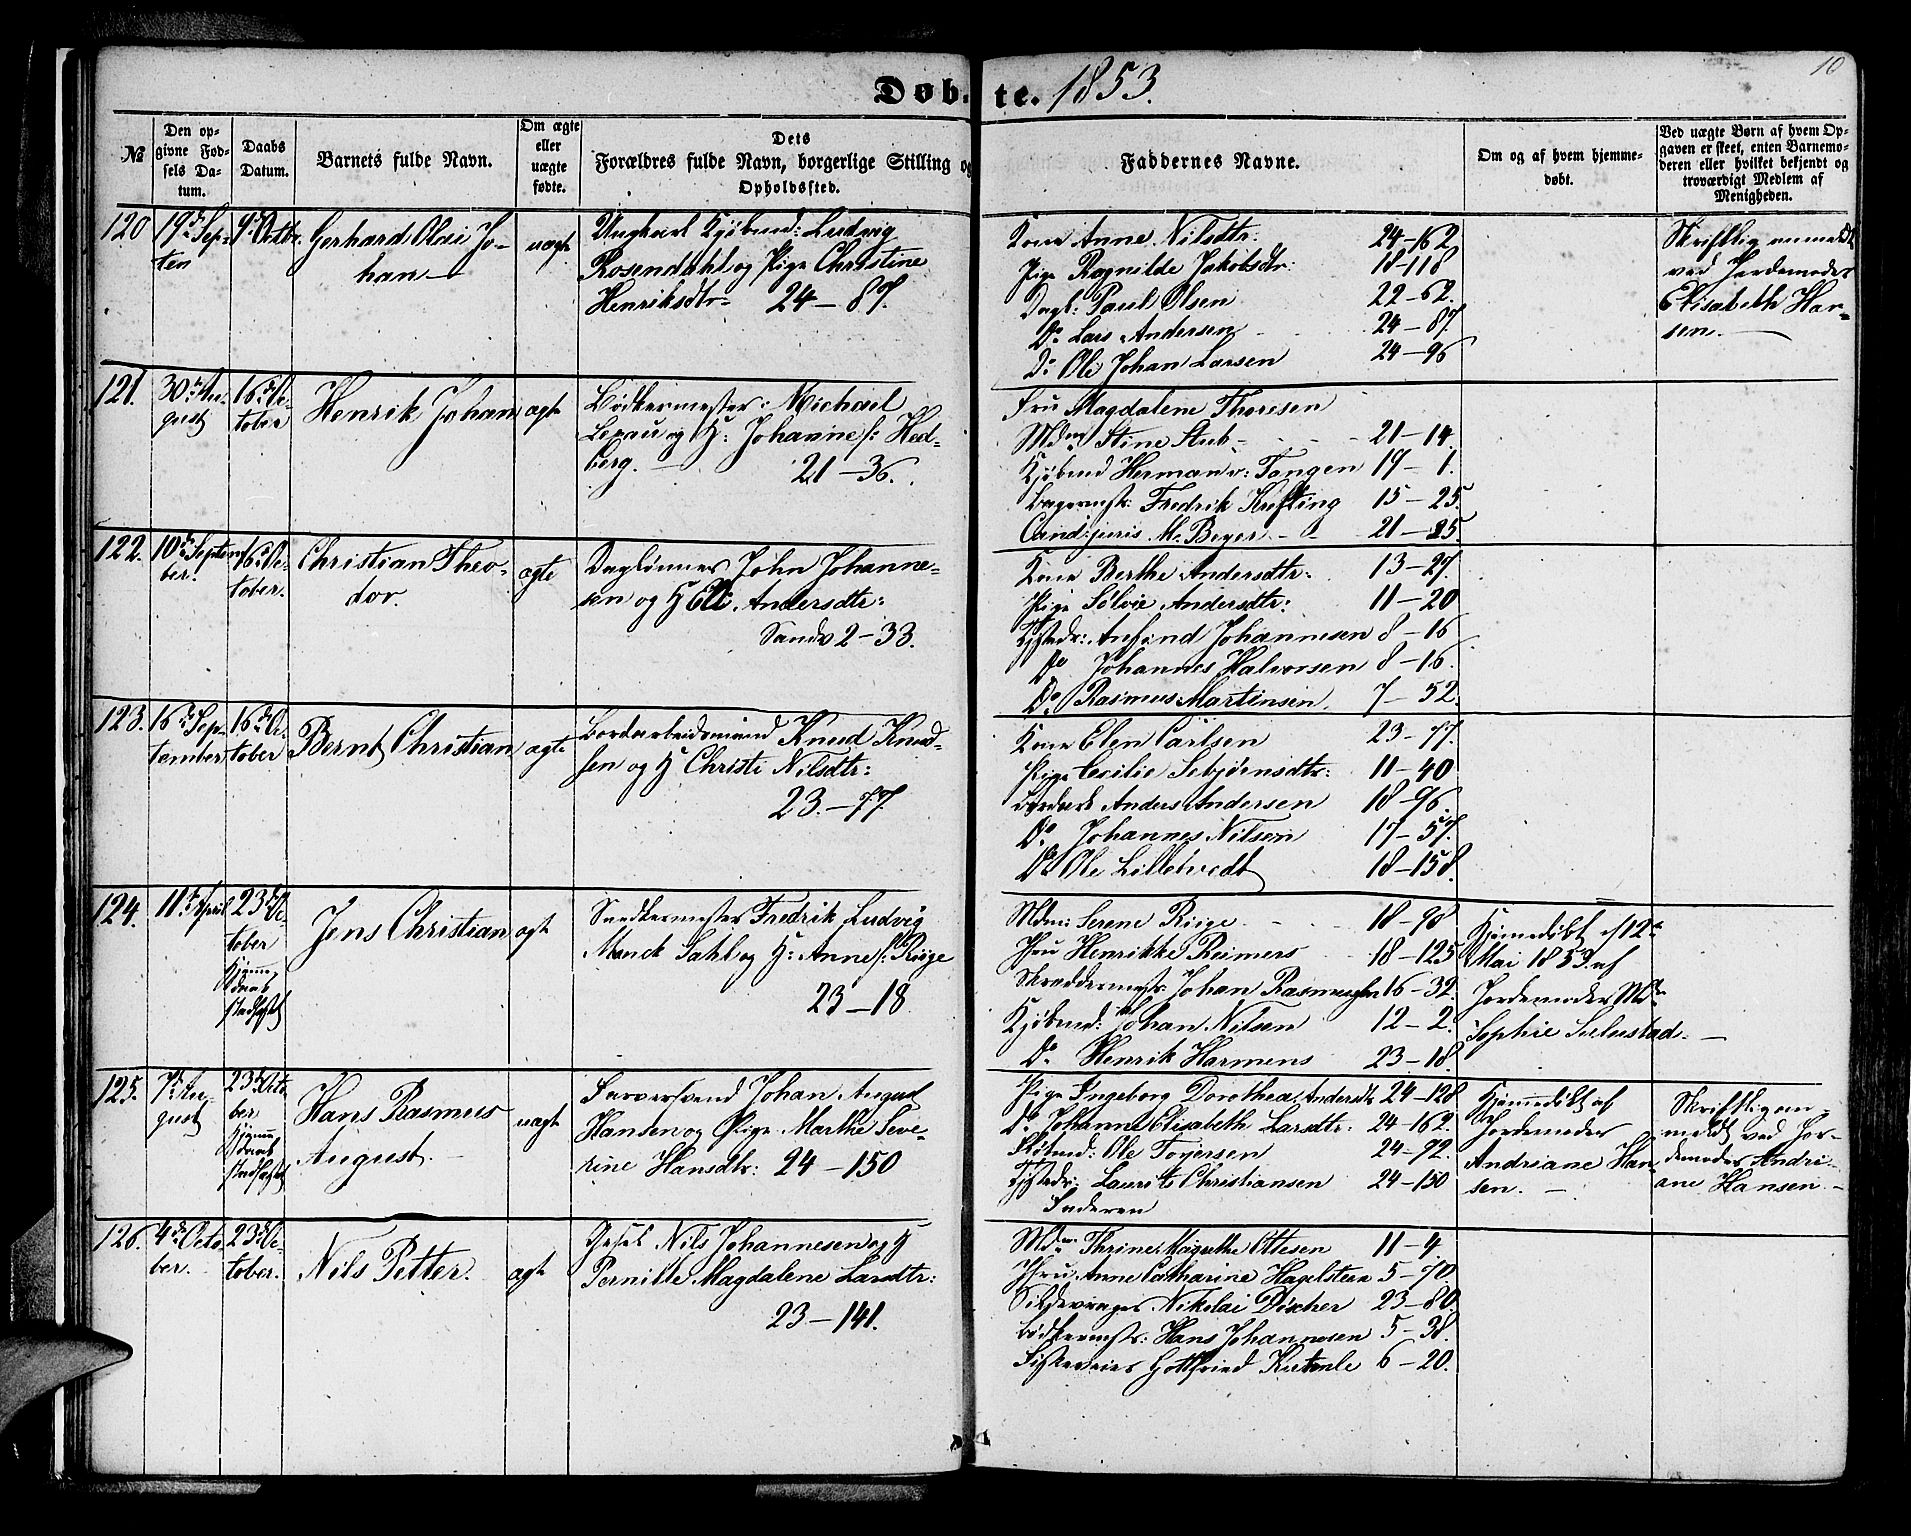 10
Døbte. 1853.
№
Den opgivne Fødsels Datum.
Daabs Datum.
Barnets fulde Navn.
Om ægte eller uægte fødte.
Dets Forældres fulde Navn, borgerlige Stilling og Opholdssted.
Faddernes Navne.
Om og af hvem hjemmedøbt.
Ved uægte Børn af hvem Opgaven er skeet, enten Barnemoderen eller hvilket bekjendt og troværdigt Medlem af Menigheden.
120 19de Septen 9de Octbr. Gerhard Olai Johan uægte
Ungkarl Kjøbmd: Ludvig
Rosendahl og Pige Christine
Henriksdtr 24-87.
Kone Anne Nilsdtr. 24-162
Pige Ragnilde Jakobsdtr: 18-118
Dagl: Paul Olsen 22-62.
Do Lars Andersen 24-87.
Do Ole Johan Larsen 24-96
Skriftlig anmeldt
ved Jordemoder
Elisabeth Hansen.
121. 30te August 16de October Henrik Johan ægte
Bødkermester: Michael
Lexau og H: Johanne f: Hedberg.
21-36.
Fru Magdalene Thoresen
Mdm Stine Stub 21-14.
Kjøbmd Herman v: Tangen 19-1.
Bagermstr: Fredrik Küfting 15-25.
Cand: juris. M. Beyer 21-25.
122. 10de September. 16de October. Christian Theodor. ægte
Daglønner John Johannesen og H Eli Andersdtr:
Sandv 2-33.
Kone Berthe Andersdtr: 13-27.
Pige Sølvie Andersdtr: 11-20
Anfind Johannesen 8-16
Do Johannes Halvorsen 8-16.
Do Rasmus Martinsen. 7-52.
123. 16de September 16de October Bernt Christian ægte
Bordarbeidsmand Knud Knudsen og H Christi Nilsdtr:
23.-77.
Kone Elen Carlsen 23-77.
Pige Cecilie Sebjørnsdtr: 11-40
Bordarb Anders Andersen 18-96.
Do Johannes Nilsen 17-57.
Do Ole Lilletvedt 18-158.
124. 11te April 23de October Hjemmedaab stadfæstet Jens Christian ægte
Snedkermester Fredrik Ludvig
Munck Sahl og H: Anne f: Riige
23-18
Mdm: Serene Riige 18-98
Jfru Henrikke Reimers 18-125
Skreddermstr: Johan Rasmussen 16-32.
Kjøbmd: Johan Nilsen 12-2.
Do Henrik Harmens 23-18.
Hjemedøbt d 12te
Mai 1853. af
Jordemoder Mdm
Sophie
125. 7de August 23de October Hjemmedaab stadfæstet Hans Rasmus August. uægte
Farversvend Johan August
Hansen og Pige Marthe Severine Hansdtr: 24-150
Pige Ingeborg Dorothea Andersdtr 24-128
Do Johanne Elisabeth Larsdtr: 24-162.
Ole Tojersen 24-92.
Laurits Christiansen 24-150
Faderen
Hjemmedøbt af
Jordemoder
Andriane Hansen.
Skriftlig anmeldt ved Jordemoder Andriane Hansen.
126. 4de October. 23de October. Nils Petter. ægte
Nils Johannesen og H
Pernille Magdalene Larsdtr:
23-141.
Mdm Thrine Margrethe Ottesen 11-4.
Jfru Anne Catharine Hagelsteen 5-70.
Sildevrager Nikolai Döscher 23-80
Bødkermstr: Hans Johannesen 5-38.
Gottfried 6-20.